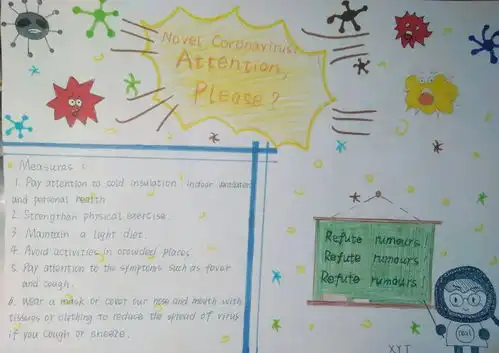 Novel Coronavirus:
Attention,
Please?
Measures:
1. Pay attention to cold insulation indoor
and personal health
2. Strengthen physical exercise.
3. Maintain a light diet.
4. Avoid activities in crowded places
5. Pay attention to the symptoms such as fever
and cough.
6. Wear a mask or cover our nose and mouth with
tissues or clothing to reduce the spread of virus
if you cough or sneeze.
Refute rumours!
Refute rumours
Refute rumours
XYT